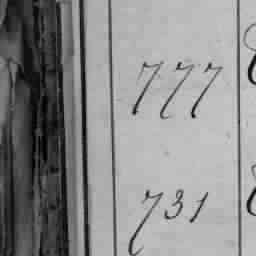 777
731